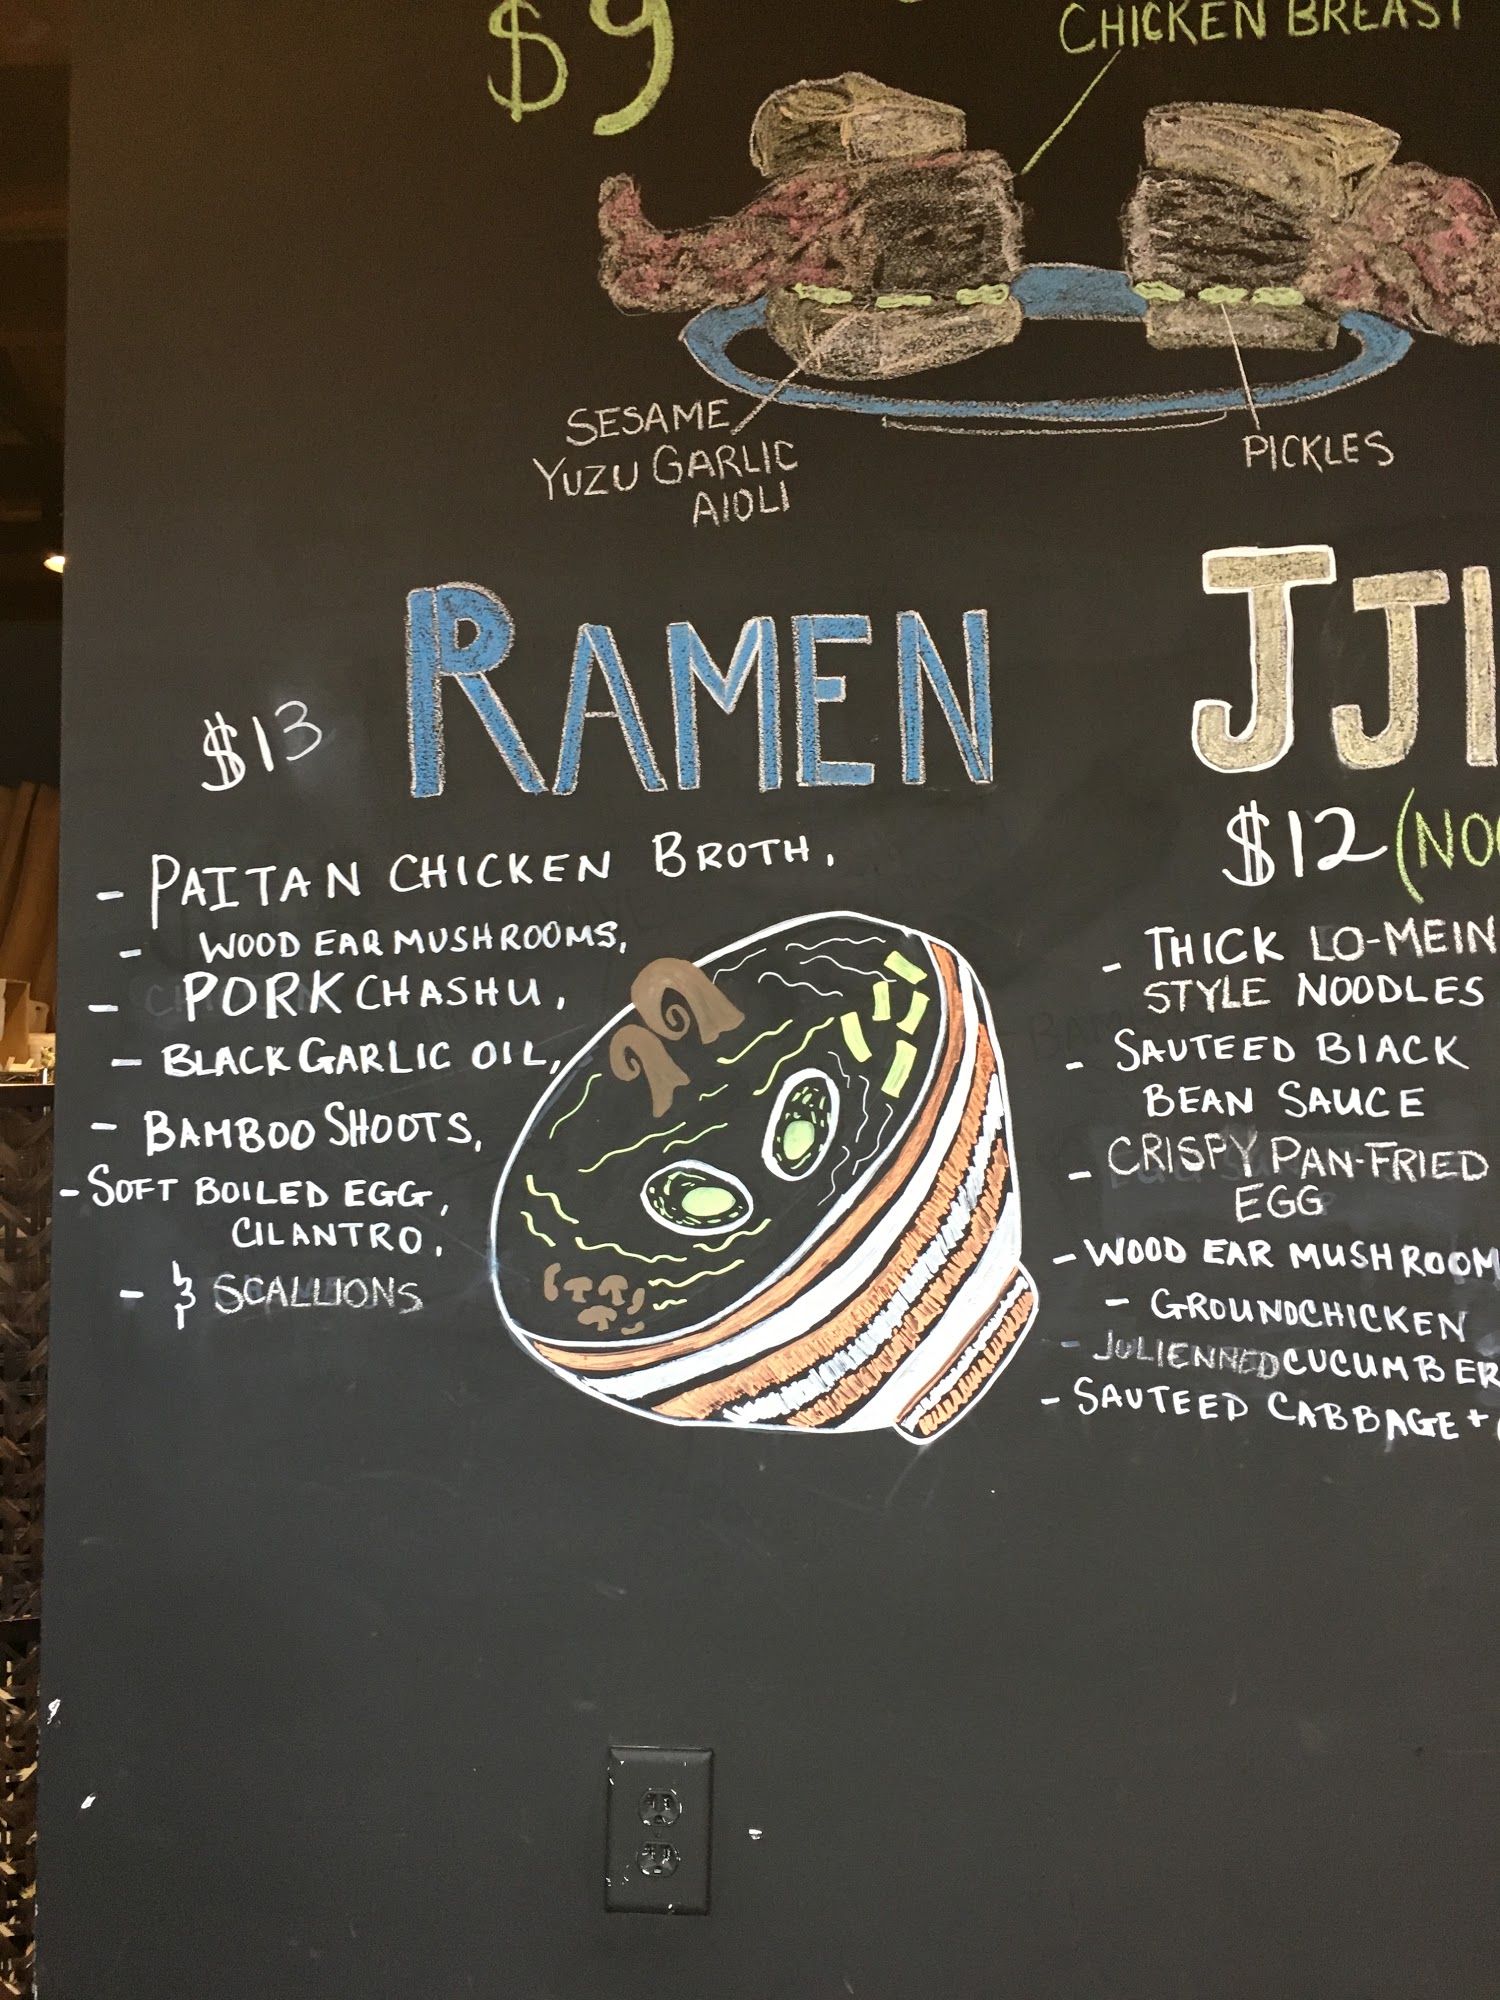 $9
CHICKEN BREAST
SESAME
YUZU GARLIC
AIOLI
PICKLES
RAMEN
$13
- PAITAN CHICKEN BROTH,
- WOOD EAR MUSHROOMS,
- PORK CHASHU,
- BLACK GARLIC OIL,
- BAMBOO SHOOTS,
- SOFT BOILED EGG,
CILANTRO,
- & SCALLIONS
JJI
$12 (NOO
- THICK LO-MEIN
STYLE NOODLES
- SAUTEED BlACK
BEAN SAUCE
- CRISPY PAN-FRIED
EGG
- WOOD EAR MUSHROOM
- GROUND CHICKEN
- JULIENNED CUCUMBER
- SAUTEED CABBAGE +